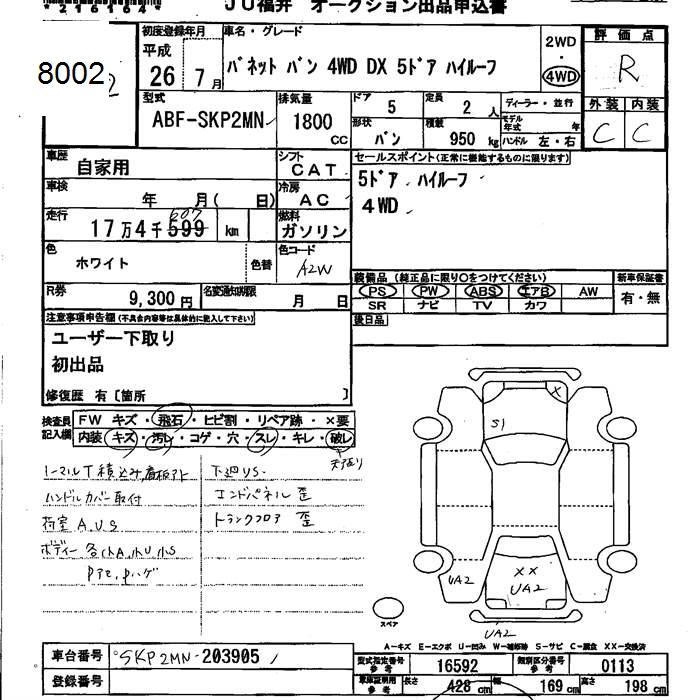 JU福井 オークション出品申込書
8002
初度登録年月
平成
26 7月
車名・グレード
バネット バン 4WD DX 5ドア ハイルーフ
2WD
・
4WD
評価点
R
型式
ABF-SKP2MN
排気量
1800
CC
ドア 5
定員 2 人
ディーラー・並行
モデル年式 年
形状 バン
積載 950 kg
ハンドル 左・右
外装 内装
C C
車歴 自家用
シフト CAT
セールスポイント(正常に機能するものに限ります)
5ドア ハイルーフ
4WD
車検 年 月( 日)
冷房 AC
走行 17万4千599 km
607
燃料 ガソリン
色 ホワイト 色替
色コード A2W
R券 9,300円
名変通知期限 月 日
装備品(純正品に限り○をつけてください)
PS PW ABS エアB AW
SR ナビ TV カワ
新車保証書
有・無
後日品
注意事項申告欄(不具合内容等は具体的に記入して下さい)
ユーザー下取り
初出品
修復歴 有〔箇所 〕
検査員記入欄
FW キズ・飛石・ヒビ割・リペア跡・×要
内装 キズ・汚レ・コゲ・穴・スレ・キレ・破レ
天アリ
ノーマルT積込み,看板アト
ハンドルカバー取付
荷室 A.U.S
ボディー 各小A.小U.小S
下廻US-
エンドパネル 歪
トランクフロア 歪
S1
×
UA2
××
UA2
UA2
スペア
A-キズ E-エクボ U-凹み W-補修跡 S-サビ C-腐食 XX-交換済
車台番号 SKP2MN-203905
登録番号
型式指定番号 参考 16592
類別区分番号 参考 0113
車庫証明用 参考
長さ 428 cm
幅 169 cm
高さ 198 cm